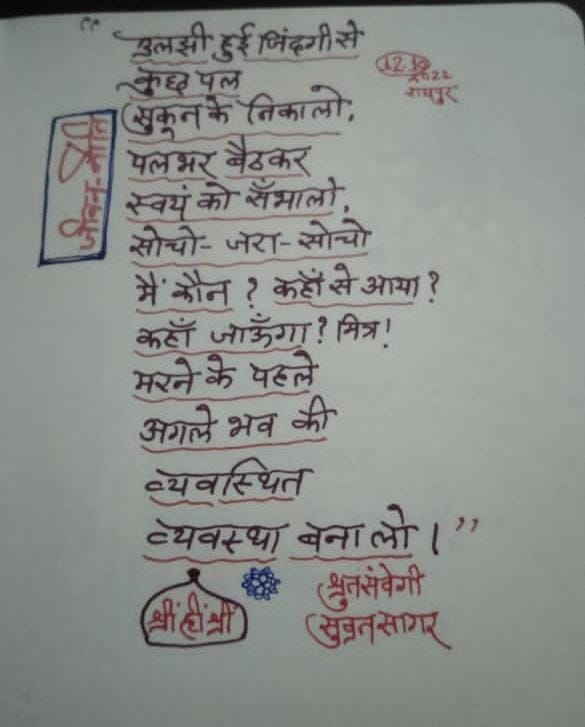 “
उलझी हुई जिंदगी से
कुछ पल
सुकून के निकालो,
पलभर बैठकर
स्वयं को सँभालो,
सोचो- जरा- सोचो
मैं कौन ? कहाँ से आया ?
कहाँ जाऊँगा ? मित्र !
मरने के पहले
अगले भव की
व्यवस्थित
व्यवस्था बना लो । ”
2022
रायपुर
जीवन-नीति
श्रीं ह्रीं श्रीं
श्रुतसंवेगी
सुव्रतसागर